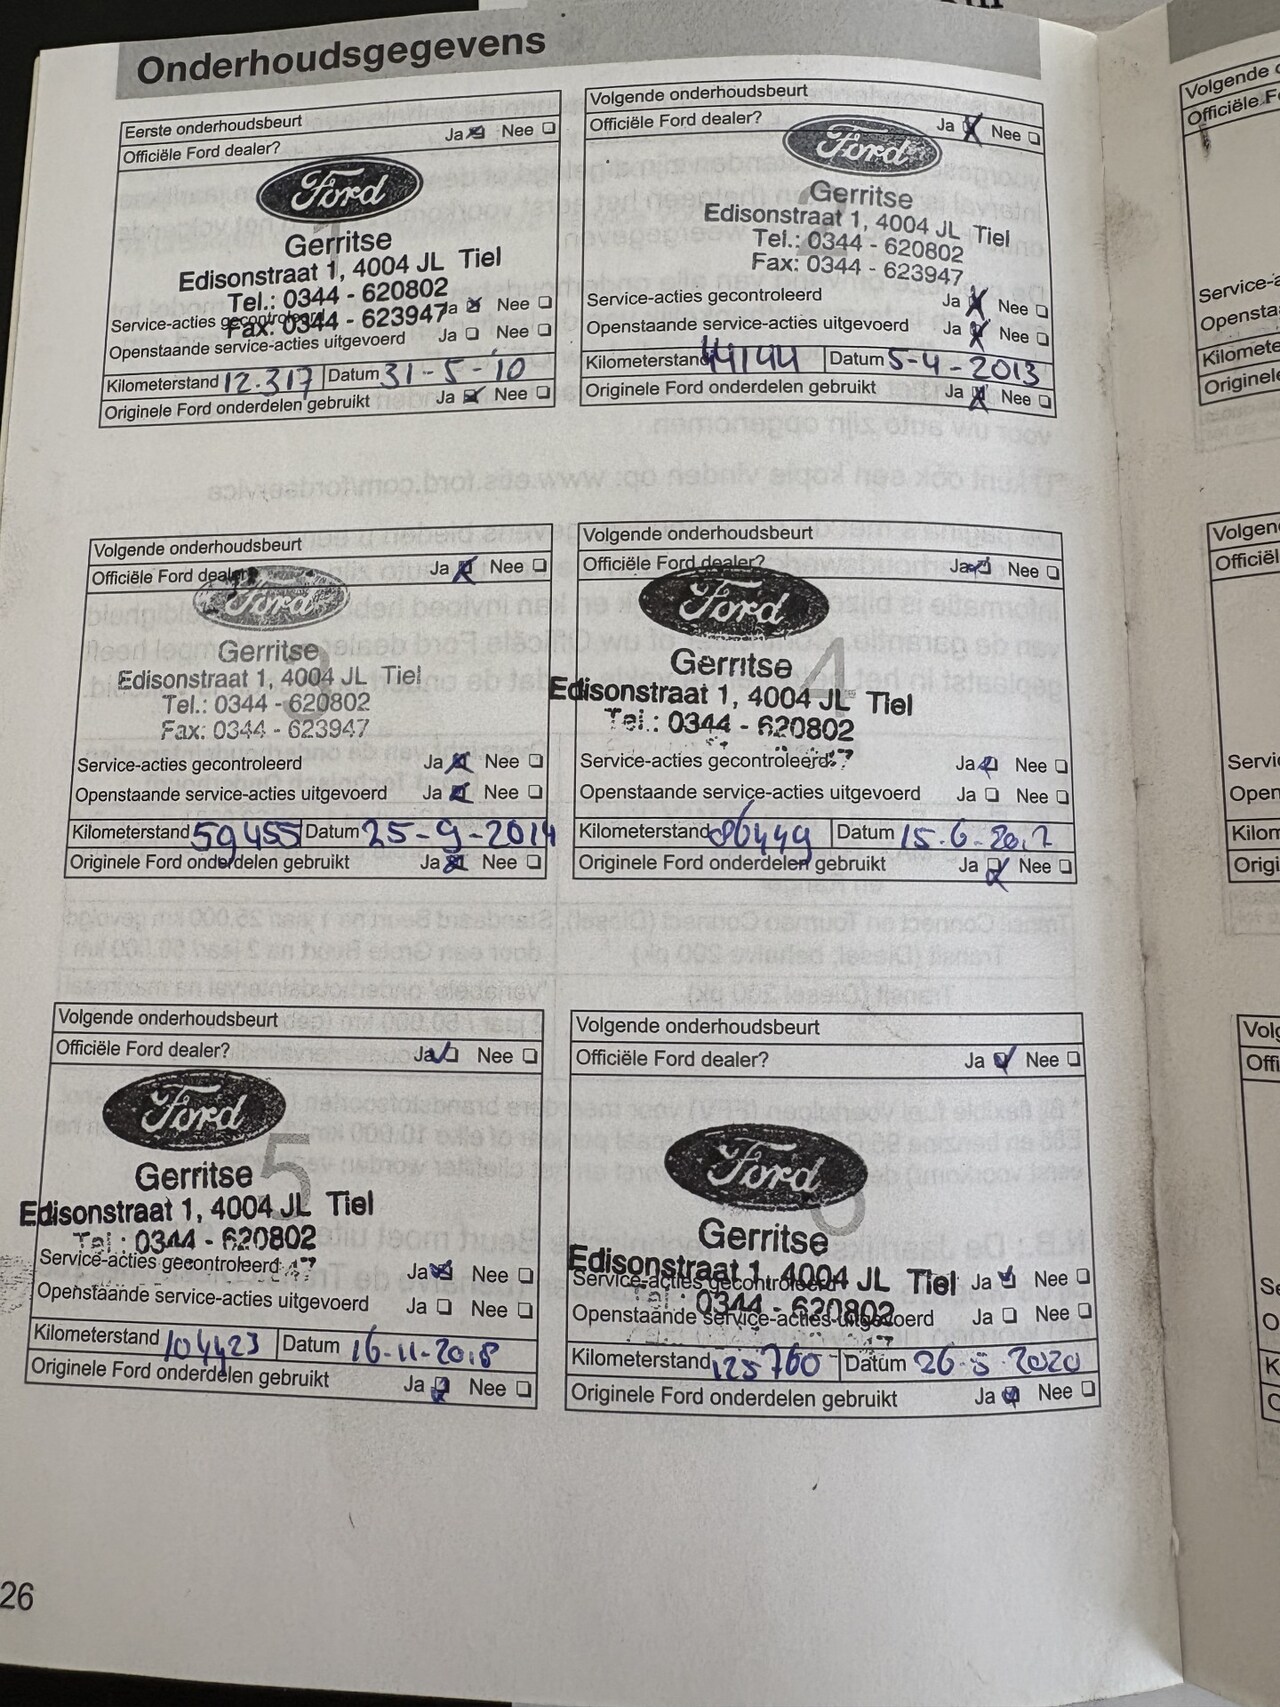 Onderhoudsgegevens
Eerste onderhoudsbeurt
Officiële Ford dealer? Ja Nee
Ford
1
Gerritse
Edisonstraat 1, 4004 JL Tiel
Tel.: 0344 - 620802
Fax: 0344 - 623947
Service-acties gecontroleerd Ja Nee
Openstaande service-acties uitgevoerd Ja Nee
Kilometerstand 12.317 Datum 31-5-'10
Originele Ford onderdelen gebruikt Ja Nee
Volgende onderhoudsbeurt
Officiële Ford dealer? Ja Nee
Ford
2
Gerritse
Edisonstraat 1, 4004 JL Tiel
Tel.: 0344 - 620802
Fax: 0344 - 623947
Service-acties gecontroleerd Ja Nee
Openstaande service-acties uitgevoerd Ja Nee
Kilometerstand 44144 Datum 5-4-2013
Originele Ford onderdelen gebruikt Ja Nee
Volgende onderhoudsbeurt
Officiële Ford dealer? Ja Nee
Ford
3
Gerritse
Edisonstraat 1, 4004 JL Tiel
Tel.: 0344 - 620802
Fax: 0344 - 623947
Service-acties gecontroleerd Ja Nee
Openstaande service-acties uitgevoerd Ja Nee
Kilometerstand 59455 Datum 25-9-2014
Originele Ford onderdelen gebruikt Ja Nee
Volgende onderhoudsbeurt
Officiële Ford dealer? Ja Nee
Ford
4
Gerritse
Edisonstraat 1, 4004 JL Tiel
Tel.: 0344 - 620802
Service-acties gecontroleerd Ja Nee
Openstaande service-acties uitgevoerd Ja Nee
Kilometerstand 86449 Datum 15-6-2017
Originele Ford onderdelen gebruikt Ja Nee
Volgende onderhoudsbeurt
Officiële Ford dealer? Ja Nee
Ford
5
Gerritse
Edisonstraat 1, 4004 JL Tiel
Tel.: 0344 - 620802
Service-acties gecontroleerd Ja Nee
Openstaande service-acties uitgevoerd Ja Nee
Kilometerstand 104423 Datum 16-11-2018
Originele Ford onderdelen gebruikt Ja Nee
Volgende onderhoudsbeurt
Officiële Ford dealer? Ja Nee
Ford
6
Gerritse
Edisonstraat 1, 4004 JL Tiel
Tel.: 0344 - 620802
Service-acties gecontroleerd Ja Nee
Openstaande service-acties uitgevoerd Ja Nee
Kilometerstand 125760 Datum 26-5-2020
Originele Ford onderdelen gebruikt Ja Nee
26